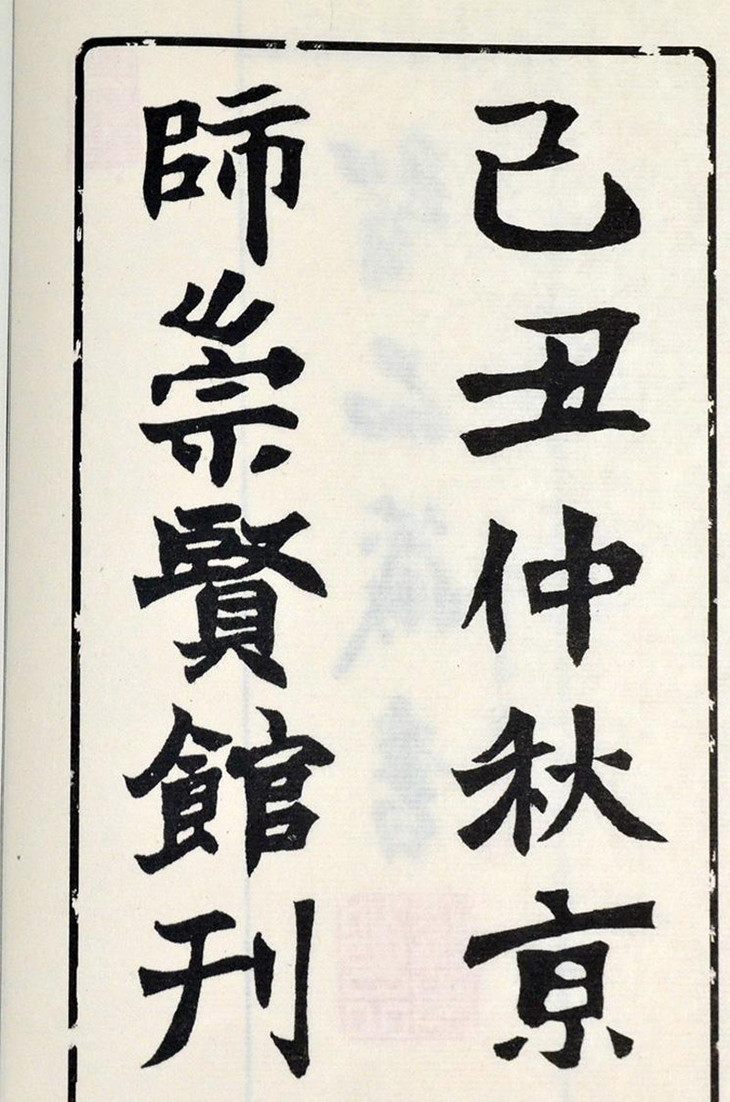 己丑仲秋亰
師崇賢館刊